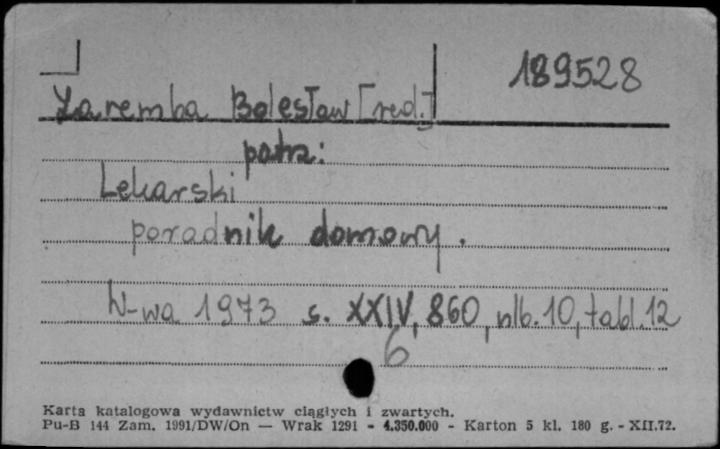 189528
Zaremba Bolesław [red.]
patrz:
Lekarski
poradnik domowy.
W-wa 1973 s. XXIV, 860, nlb. 10, tabl. 12
6
Karta katalogowa wydawnictw ciągłych i zwartych.
Pu-B 144 Zam. 1991/DW/On — Wrak 1291 - 4.350.000 - Karton 5 kl. 180 g. - XII.72.